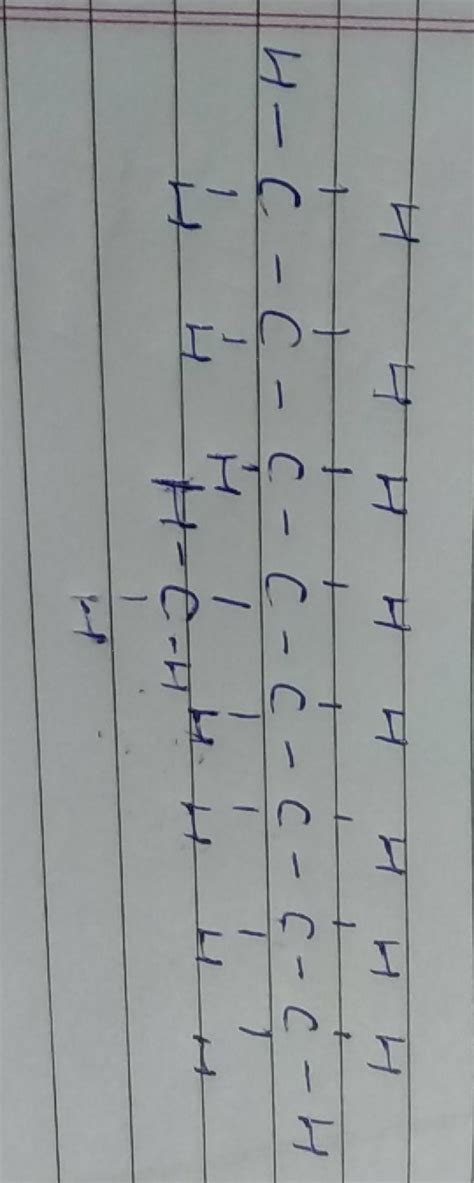 H H H H H H H H
| | | | | | | |
H - C - C - C - C - C - C - C - C - H
| | | | | | | |
H H H H H H H
H - C - H
|
H